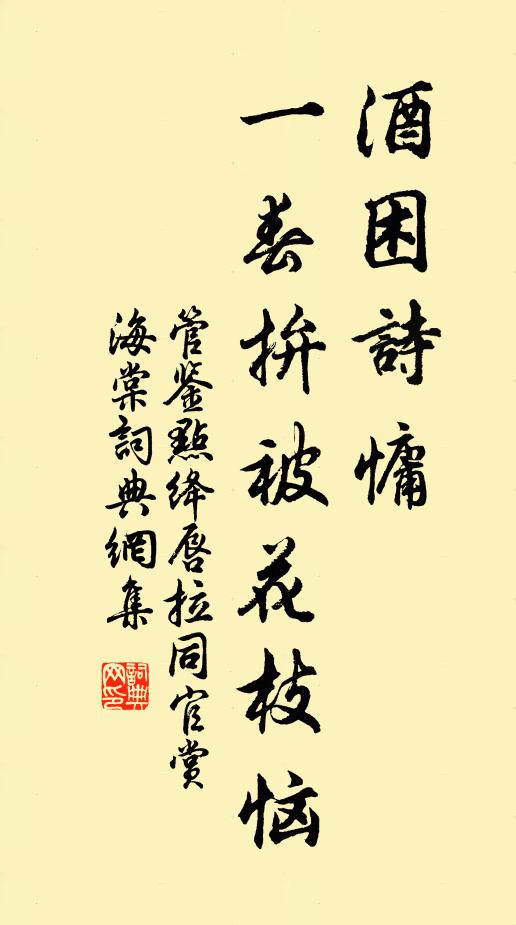 酒困詩慵
一春拚被花枝恼
管鉴點绛唇拉同官賞
海棠詞典網集
詞典网印